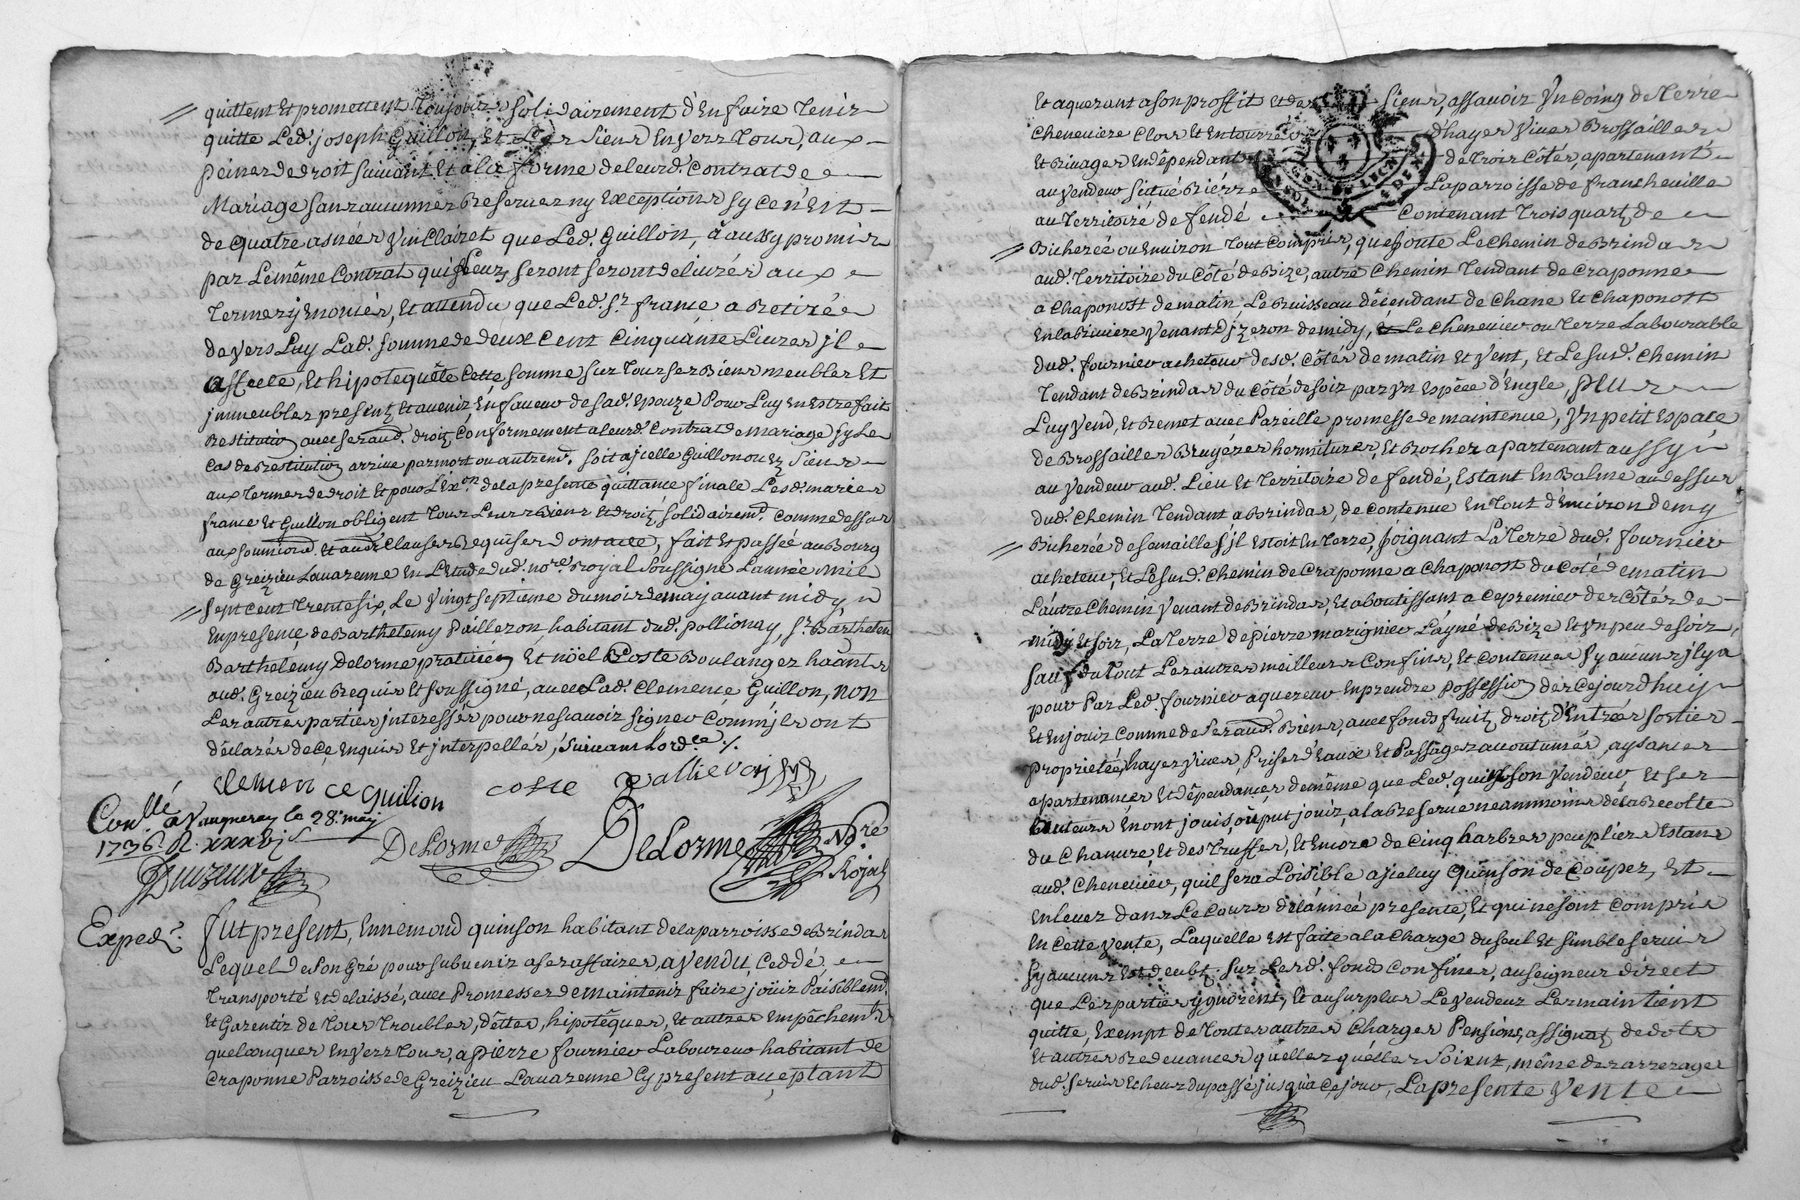 quittent Et promettent Toujours solidairement d'En faire Tenir
quitte Led. joseph Guillon, Et Les Siens Envers Tous, aux
peines de droit suivant Et a la forme de leurd. Contrat de
Mariage sans aucunnes Reserves ny Exceptions sy ce n'Est
de quatre asnées vin Clairet que Led. Guillon, a aussy promis
par Le même Contrat qui Leurs seront seront delivrés aux
Termes y Enoncés, Et attendu que Led. Sr. france a Retiré
devers Luy Lad. somme de deux Cent Cinquante Livres jl
affecte, Et hipotequête Cette somme sur Tous ses Biens meubles Et
jmmeubles presents Et avenir, En faveur de sad. Epouze Pour Luy en Estre fait
Restitution avec ses aud. droits Conformement a leurd. Contrat de Mariage sy Le
Cas de Restitution arrive par mort ou autremt. soit a jcelle Guillon ou Es Siens
aux Termes de droit Et pour L'Exon. de la presente quittance finale Lesd. maries
france Et Guillon obligent Tous Leurs Biens Et droits solidairemt. Comme dessus
aux soumiond. Et aud. Clauses Requises dont acte, fait Et passée au Bourg
de Greizieu Lavarenne En L'Etude dud. nore. Royal soussigné L'année mil
sept cent Trente six, Le vingt septieme du mois de may avant midy, n
En presence de Barthelemy Paillezon, habitant dud. pollionay, Sr. Barthelem
Barthelemy Delorme praticien Et nöel Coste Boulanger haants
aud. Greizieu Requis Et soussigné, avec Lad. Clemence Guillon, non
Les autres parties jnteressés pour ne scavoir signer Comm' jls ont
déclarés de ce Enquis Et jnterpellés, suivant Lordce. /.
clemence guilion coste
Conllé. a Vaugneray le 28: may
1736. R. xxxvjs
Delorme Delorme Nore
Royal
Exped.
Fut present, Ennemond quinson habitant de la parroisse de Brindas
Lequel de son Gré pour subvenir a ses affaires, a vendu, Ceddé
Transporté Et delaissé, avec Promesses de maintenir faire joüir Paisiblemt.
Et Garentir de Tous Troubles, dettes, hipotêques, Et autres Empêchemts.
quelconques Envers Tous, a pierre fournier Laboureur habitant de
Craponne Parroisse de Greizieu Lavarenne Cy present acceptant
Et aquerant a son proffit Et des Siens, assavoir Un Coing de Terre
Cheneviere Clos Et Entourré d'hayes vives Brossailles
Et Rivages En dépendant de Trois Côtés, apartenant
au vendeur situé Riérre La parroisse de francheville
au Territoire de fendé Contenant Trois quarts de
Bicherée ou Environ Tout Compris, que joute Le Chemin de Brindas
aud. Territoire du Côté de Bize, autre Chemin Tendant de Craponne
a Chaponost de matin, Le Ruisseau décendant de Chane Et Chaponost
En la Riviere venant d'jzeron de midy, Le Chenevier ou Terre Labourable
dud. fournier acheteur desd. Côtés de matin Et vent, Et Le susd. Chemin
Tendant de Brindas du Côté de soir par Un Espêce d'Engle, plus
Luy vend, Et Remet avec Pareille promesse de maintenue, Un petit Espace
de Brossailles Bruyéres hermitures, Et Rochers apartenant aussy
au vendeur aud. Lieu Et Territoire de fendé, Estant En Balme au dessus
dud. Chemin Tendant a Brindas, de contenue En Tout d'Environ demy
Bicherée de semailles s'jl Estoit En Terre, joignant La Terre dud. fournier
acheteur, Et Le susd. Chemin de Craponne a Chaponost du coté de matin
L'autre Chemin venant de Brindas, Et aboutissant a Ce premier des côtés de
midy Et soir, La Terre de pierre mazignier L'ayné de Bize Et Un peu de soir,
sauf du Tout Les autres meilleurs Confins, Et Contenues sy aucuns jl y a
pour Par Led. fournier aquereur En prendre possession des Cejourd'huy
Et En jouir Comme de ses aud. Biens, avec fonds fruits, droits d'Entrées sorties
proprietés, hayes vives, Prises d'Eaux Et Passages accoutumés, aysances
apartenances Et dépendances de même que Led. quinson vendeur, Et ses
auteurs En ont jouis, ou put jouir, a la Reserve neammoins de la Recolte
du Chanvre, Et des Truffes, Et Encore de Cinq harbres peupliers Estans
aud. Chenevier, qu'il sera Loisible a jceluy Quinson de Couper, Et
Enlever dans Le Cours de L'année presente, Et qui ne sont Compris
En Cette vente, Laquelle Est faite a la Charge du seul Et simble servis
sy aucuns Est deubt sur Lesd. fonds Confinés, au seigneur direct
que Les parties jgnorent, Et au surplus Le vendeur Les maintient
quitte, Exempt de Toutes autres Charges Pensions, assignats de dots
Et autres Redevances quelles qu'elles Soient, même des arrerages
dud. servis Echeus du passé jusqu'a ce jour, La presente Vente